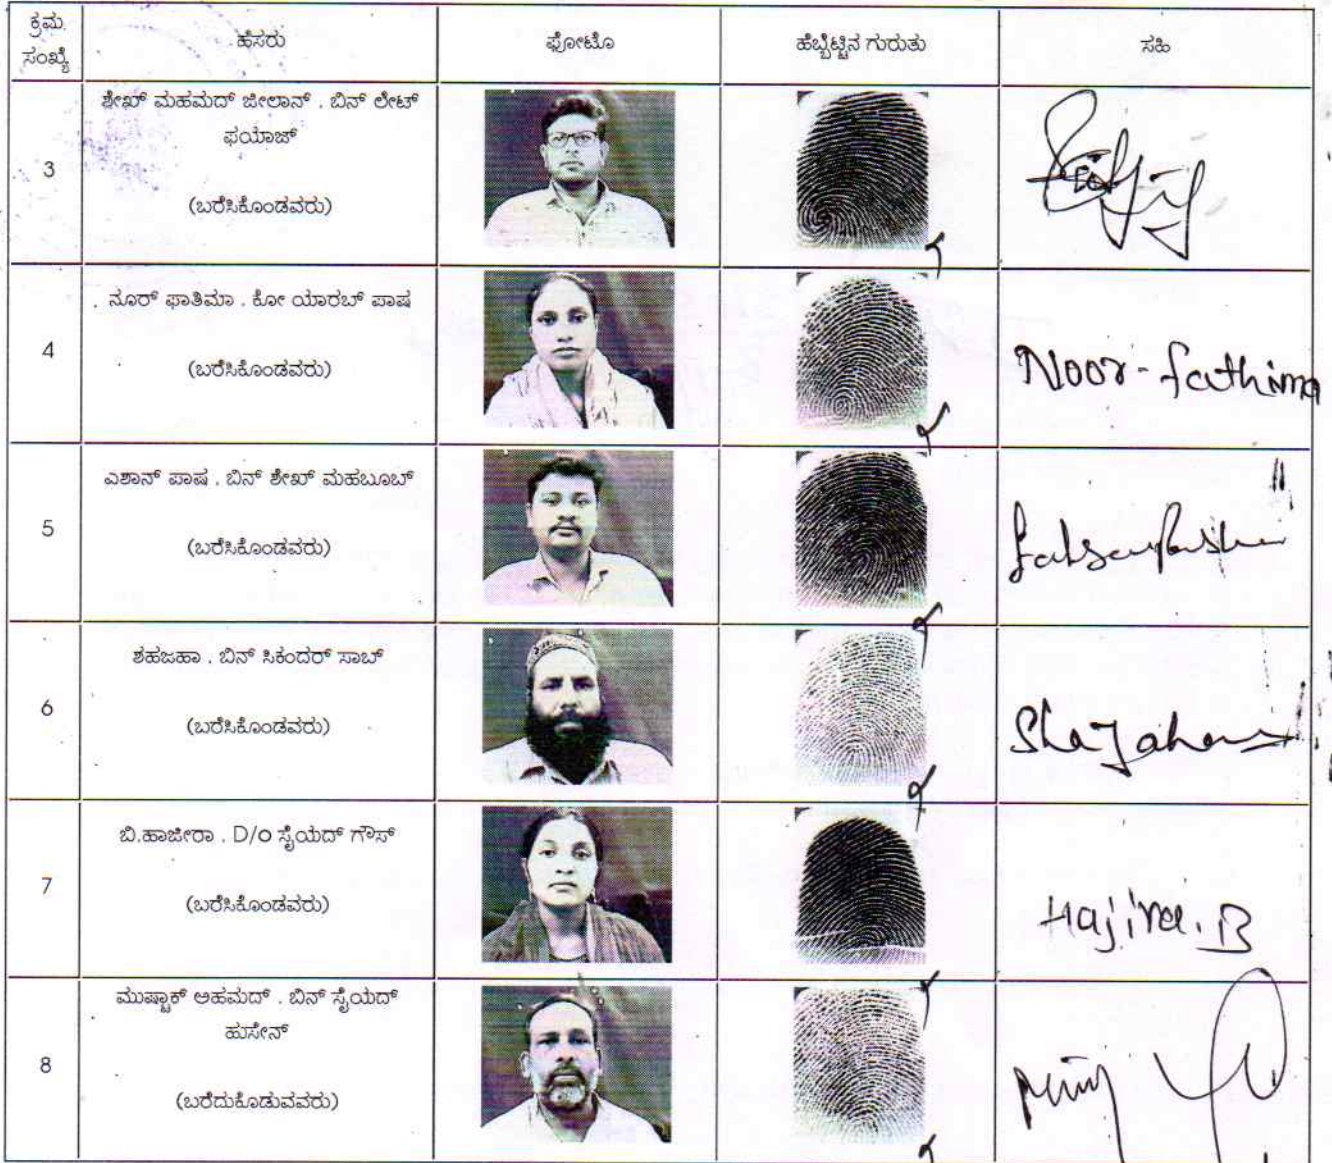 ಕ್ರಮ ಸಂಖ್ಯೆ ಹೆಸರು ಫೋಟೊ ಹೆಬ್ಬೆಟ್ಟಿನ ಗುರುತು ಸಹಿ
ಶೇಖ್ ಮಹಮದ್ ಜೀಲಾನ್ . ಬಿನ್ ಲೇಟ್
ಫಯಾಜ್
3
(ಬರೆಸಿಕೊಂಡವರು)
ನೂರ್ ಫಾತಿಮಾ . ಕೋ ಯಾರಬ್ ಪಾಷ
4
(ಬರೆಸಿಕೊಂಡವರು)
Noor-fathima
ಎಶಾನ್ ಪಾಷ . ಬಿನ್ ಶೇಖ್ ಮಹಬೂಬ್
5
(ಬರೆಸಿಕೊಂಡವರು)
ಶಹಜಹಾ . ಬಿನ್ ಸಿಕಂದರ್ ಸಾಬ್
6
(ಬರೆಸಿಕೊಂಡವರು)
Shajahan
ಬಿ.ಹಾಜೀರಾ . D/o ಸೈಯದ್ ಗೌಸ್
7
(ಬರೆಸಿಕೊಂಡವರು)
Hajira.B
ಮುಷ್ಟಾಕ್ ಅಹಮದ್ . ಬಿನ್ ಸೈಯದ್
ಹುಸೇನ್
8
(ಬರೆದುಕೊಡುವವರು)